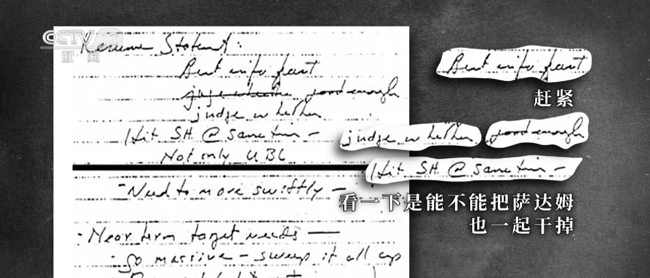 CCTV
新闻
Resume Statement:
Best info fast
good enough
judge whether
Hit SH @ same time –
Not only UBL
- Need to move swiftly –
- Near term target needs —
- go massive – sweep it all up
Best info fast
赶紧
judge whether good enough
Hit SH @ same time –
看一下是能不能把萨达姆
也一起干掉